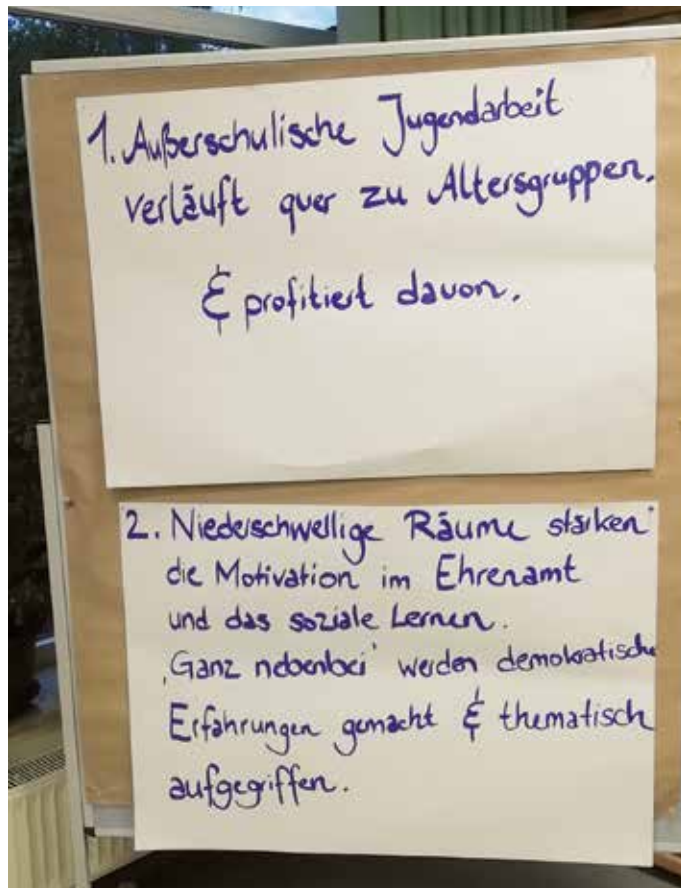 1. Außerschulische Jugendarbeit
verläuft quer zu Altersgruppen.
& profitiert davon.
2. Niederschwellige Räume stärken
die Motivation im Ehrenamt
und das soziale Lernen.
‚Ganz nebenbei‘ werden demokratische
Erfahrungen gemacht & thematisch
aufgegriffen.